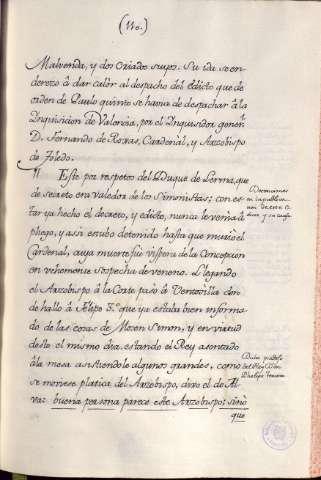 (110.)
Malvenda, y dos Criados suyos. Su ida se en-
derezo â dar calor al despacho del edicto que de
orden de Paulo quinto se havia de despachar â la
Inquisicion de Valencia, por el Inquisidor gener.l
D. Fernando de Roxas, Cardenal, y Arzobispo
de Toledo.
Este por respetos del Duque de Lerma, que
de secreto era valedor de los Simonistas; con es-
tar ya hecho el decreto, y edicto, nunca le venia â
pliego, y assi estubo detenido hasta que murio el
Cardenal, cuya muerte fue vispera de la Concepcion
con vehemente sospecha de veneno. Llegando
el Arzobispo â la Corte paso â Ventosilla don-
de hallo â Felipe 3.º que ya estaba bien informa-
do de las cosas de Mosen Simon, y en virtud
deste el mismo dia, estando el Rey asentado
âla mesa asistiendole algunos grandes, como
se moviese platica del Arzobispo, dixo el de Al-
va: buena persona parece este Arzobispo; sino
que